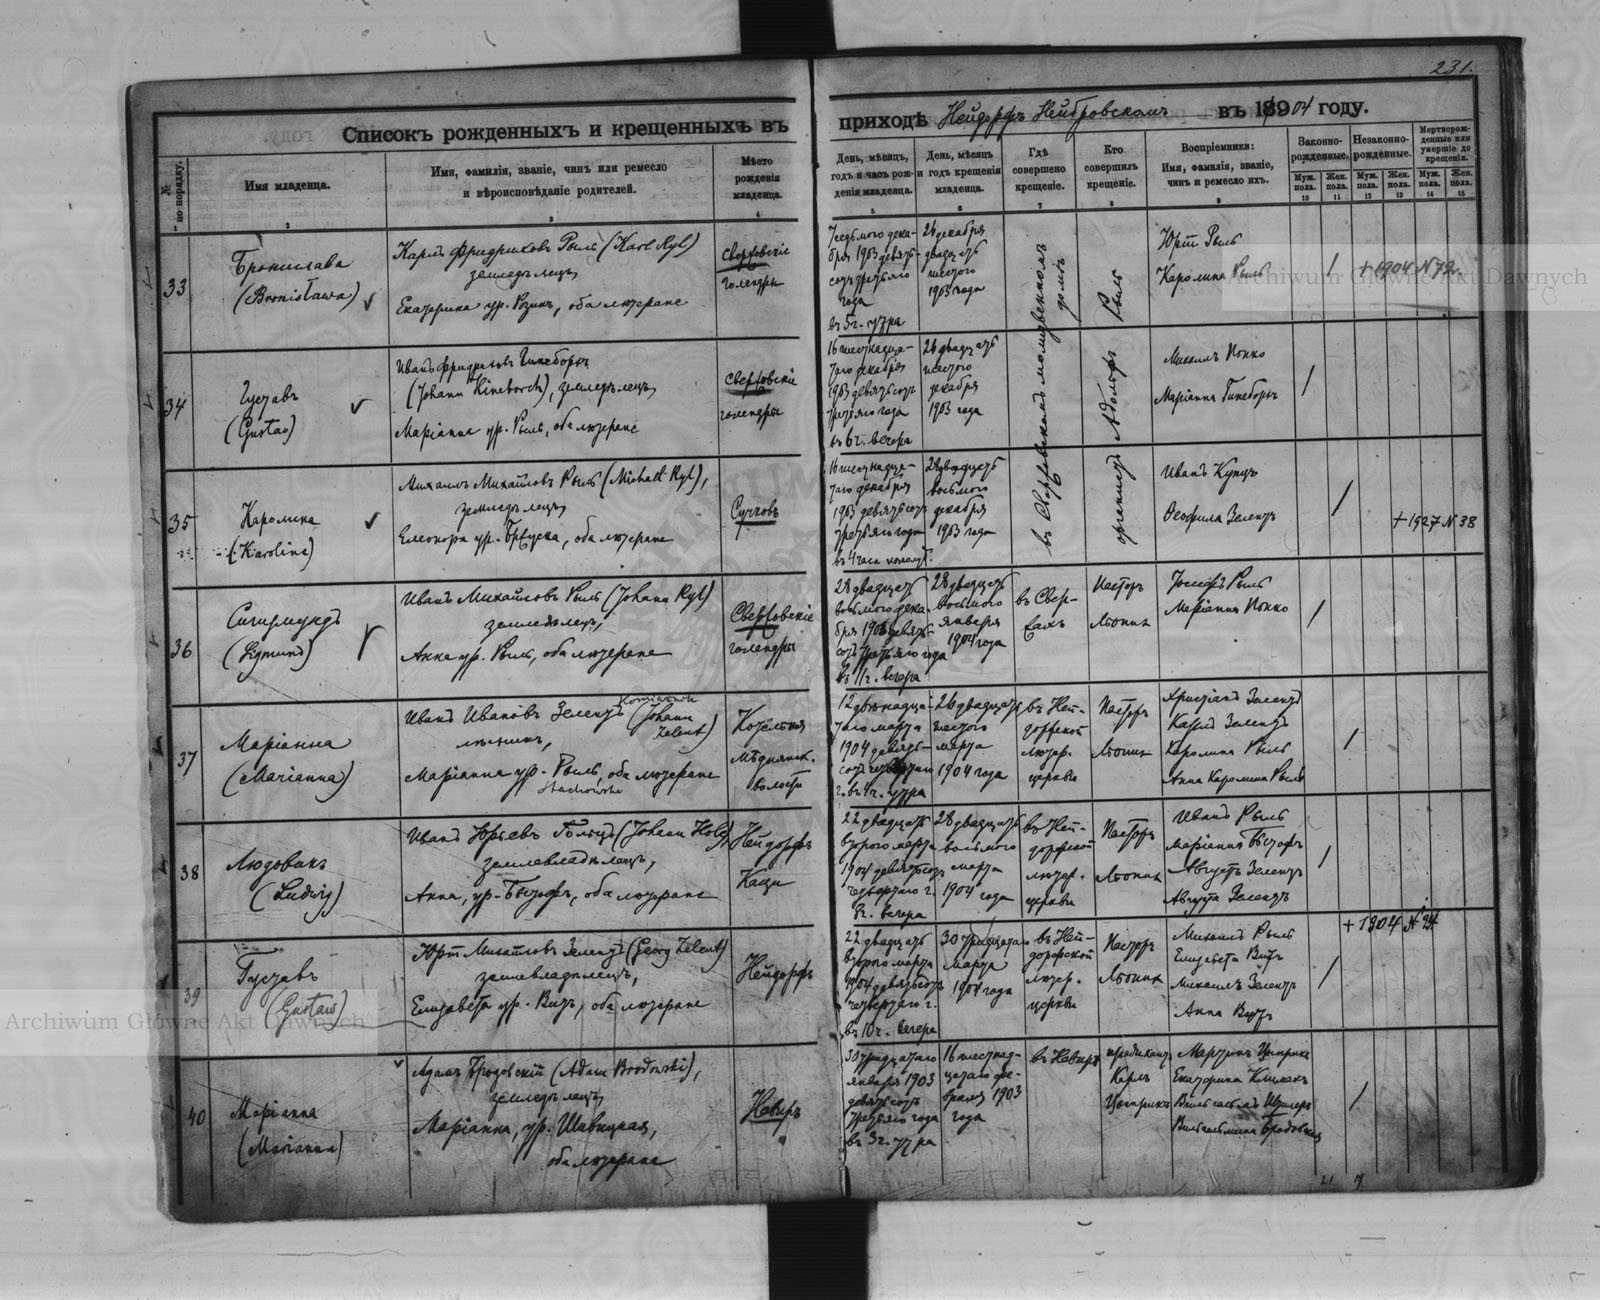 231.
Списокъ рожденныхъ и крещенныхъ въ приходѣ Нейдорфъ Нейбровскомъ въ 1904 году.
№ по порядку.
Имя младенца.
Имя, фамилія, званіе, чинъ или ремесло
и вѣроисповѣданіе родителей.
Мѣсто
рожденія
младенца.
День, мѣсяцъ,
годъ и часъ рож-
денія младенца.
День, мѣсяцъ
и годъ крещенія
младенца.
Гдѣ
совершено
крещеніе.
Кто
совершилъ
крещеніе.
Воспріемники:
Имя, фамилія, званіе,
чинъ и ремесло ихъ.
Законно-
рожденные.
Незаконно-
рожденные.
Мертворож-
денные или
умершіе до
крещенія.
Муж. пола.
Жен. пола.
Муж. пола.
Жен. пола.
Муж. пола.
Жен. пола.
1 2 3 4 5 6 7 8 9 10 11 12 13 14 15
33
Бронислава
(Bronisława)
Карлъ Фридриховъ Рыль (Karl Ryl)
земледѣлецъ,
Екатерина ур. Рзинъ, оба лютеране
голендры
7 седьмого дека-
бря 1903 девять-
сотъ третьяго
года
въ 5 ч. утра
26 декабря
двадцать
шестого
1903 года
домѣ
Рыль
Юрій Рыль
Каролина Рыль
+ 1904 N 72.
34
Густавъ
(Gustav)
Иванъ Фридриховъ Гинеборхъ
(Johann Hineborch), земледѣлецъ,
Маріанна ур. Рыль, оба лютеране
голендры
16 шестнадца-
таго декабря
1903 девятьсотъ
третьяго года
въ 6 ч. вечера
26 двадцать
шестого
декабря
1903 года
Адольфъ
Михаилъ Попко
Маріанна Гинеборхъ
35
Каролина
(Karoline)
Михаилъ Михайловъ Рыль (Michael Ryl),
земледѣлецъ,
Елеонора ур. Бруска, оба лютеране
Сучковъ
16 шестнадца-
таго декабря
1903 девятьсотъ
третьяго года
28 двадцать
восьмого
декабря
1903 года
Иванъ Купцъ
Теофила Зелентъ
+ 1927 N 38
36
Сигизмундъ
(Zygmund)
Иванъ Михайловъ Рыль (Johann Ryl)
земледѣлецъ,
Анна ур. Рыль, оба лютеране
голендры
28 двадцать
восьмого дека-
бря 1903 девять-
сотъ третьяго года
въ 11 ч. вечера
28 двадцать
восьмого
января
1904 года
Пасторъ
Іосифъ Рыль
Маріанна Попко
37
Маріанна
(Marianna)
Иванъ Ивановъ Зелентъ (Johann
Zelent)
Маріанна ур. Рыль, оба лютеране
волости
12 двѣнадца-
таго марта
1904 девять-
сотъ четвертаго
г. въ 4 ч. утра
26 двадцать
шестого
марта
1904 года
въ Ней-
дорфской
лютер.
церкви
Пасторъ
Христіанъ Зелентъ
Карлъ Зелентъ
Каролина Рыль
Анна Каролина Рыль
38
Людовикъ
(Ludwig)
Иванъ Юрьевъ Гольцъ (Johann Holz)
землевладѣлецъ,
Анна, ур. Бытофъ, оба лютеране
Нейдорфъ
22 двадцать
второго марта
1904 девятьсотъ
четвертаго г.
28 двадцать
восьмого
марта
1904 года
въ Ней-
дорфской
лютер.
церкви
Пасторъ
Иванъ Рыль
Маріанна Бытофъ
Августъ Зелентъ
Августа Зелентъ
39
Густавъ
(Gustaw)
Юрій Михайловъ Зелентъ (Georg Zelent)
землевладѣлецъ,
Елизавета ур. Витъ, оба лютеране
Нейдорфъ
22 двадцать
второго марта
1904 девятьсотъ
четвертаго г.
въ 10 ч. вечера
30 тридцатаго
марта
1904 года
въ Ней-
дорфской
лютер.
церкви
Пасторъ
Михаилъ Рыль
Елизавета Витъ
Михаилъ Зелентъ
Анна Витъ
+ 1904 N 94
40
Маріанна
(Marianna)
Адамъ Бродовскій (Adam Brodowski),
земледѣлецъ,
Маріанна, ур. Шивицкая,
оба лютеране
Невиръ
30 тридцатаго
января 1903
девятьсотъ
третьяго года
въ 3 ч. утра
16 шестнад-
цатаго фе-
враля 1903
года
въ Невирѣ
Карлъ
Екатерина Климакъ
Вильгельмина Бродовская
21 7
Archiwum Główne Akt Dawnych
Archiwum Główne Akt Dawnych